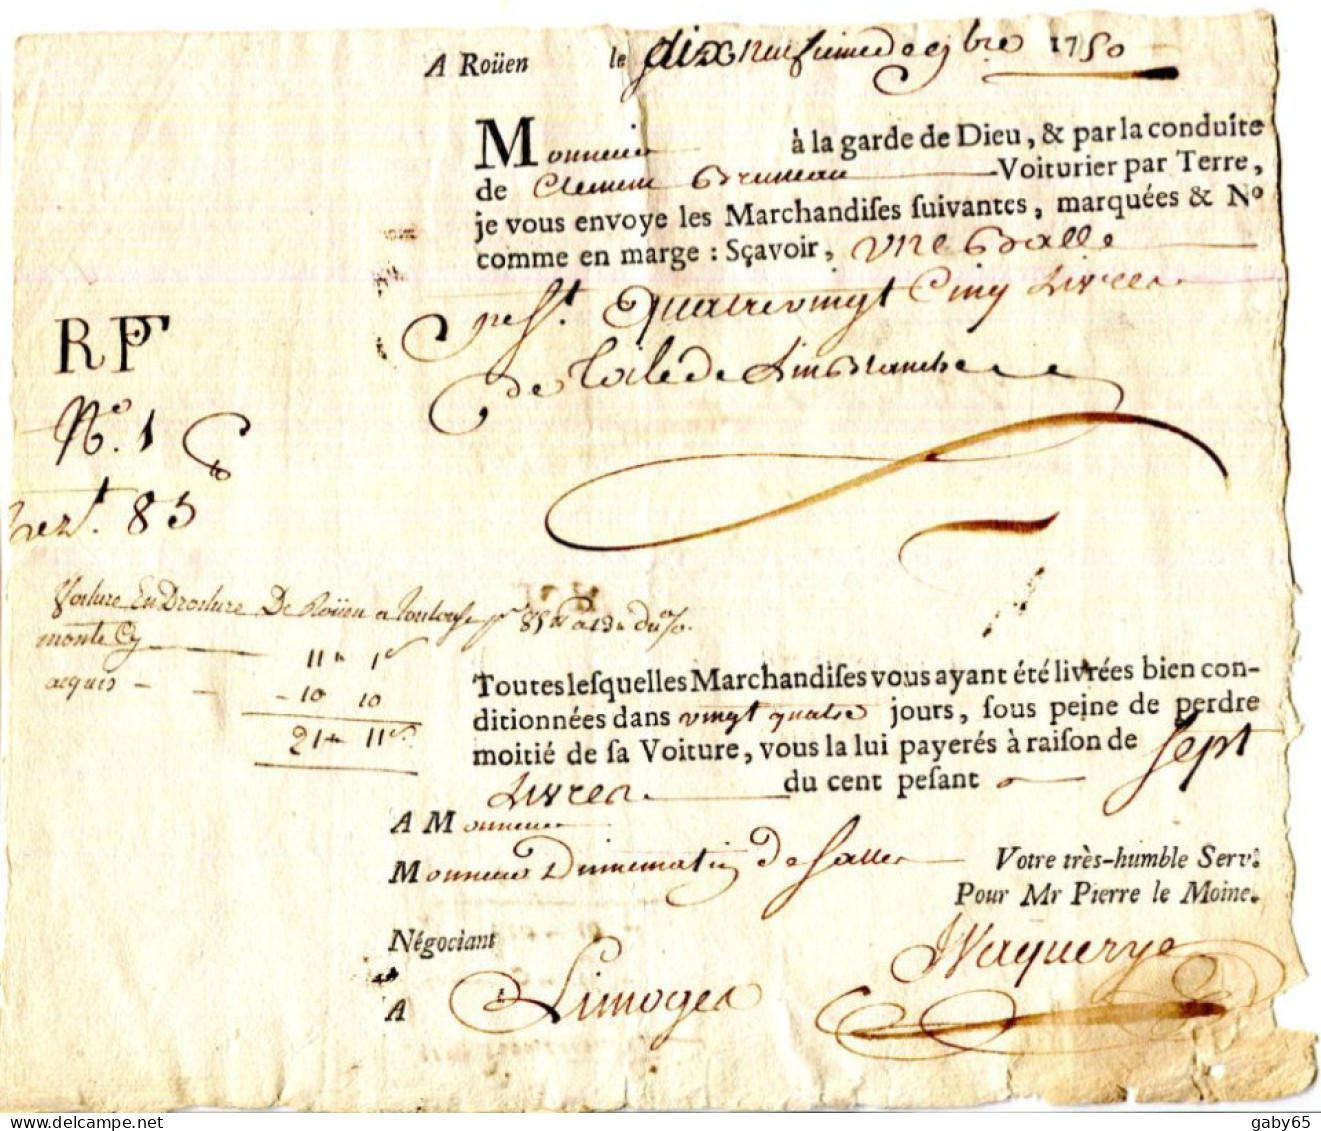 A Roüen le dixneufieme de 9bre 1750
Monsieur à la garde de Dieu, & par la conduite
de Clement Bruneau Voiturier par Terre,
je vous envoye les Marchandiſes ſuivantes, marquées & No
comme en marge : Sçavoir, une Balle
pest. Quatrevingt Cinq Livres
de toile de Lin Blanche
RP
No. 1
Pezt. 85
Voiture En Droiture De Roüen a Toulouse pr 85 a 13 du %.
monte Cy 11 1s
acquis - - 10 10
21 11s
Toutes leſquelles Marchandiſes vous ayant été livrées bien con-
ditionnées dans vingt quatre jours, ſous peine de perdre
moitié de ſa Voiture, vous la lui payerés à raiſon de sept
Livres du cent peſant
A Monsieur
Monsieur De Salles
Votre très-humble Serv.
Pour Mr Pierre le Moine.
Négociant
JVaquerye
A Limoges
gaby65